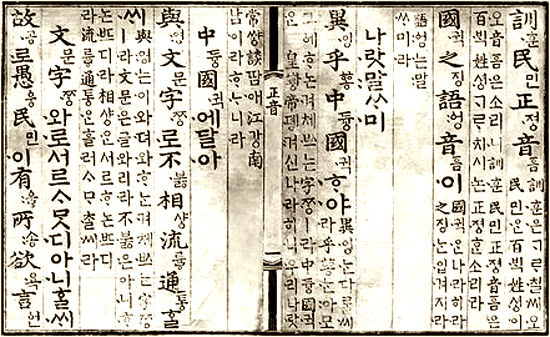 訓훈民민正졍音ᅙᅳᆷ
訓훈은ᄀᆞᄅᆞ칠씨오
民민ᄋᆞᆫ百ᄇᆡᆨ姓셩이
오音ᅙᅳᆷ은소리니訓훈民민正졍音ᅙᅳᆷ은
百ᄇᆡᆨ姓셩ᄀᆞᄅᆞ치시논正졍ᄒᆞᆫ소리라
國귁之징語ᅌᅥᆼ音ᅙᅳᆷ이
國귁ᄋᆞᆫ나라히라
之징ᄂᆞᆫ입겨지라
語ᅌᅥᆼ는말
ᄊᆞ미라
나랏말ᄊᆞ미
異잉乎ᅘᅩᆼ中듕國귁ᄒᆞ야
異잉ᄂᆞᆫ다ᄅᆞᆯ씨
라乎ᅘᅩᆼᄂᆞᆫ아모
그에ᄒᆞ논겨체ᄡᅳ는字ᄍᆞᆼㅣ라中듕國귁
ᄋᆞᆫ皇황帝뎽겨신나라히니우리나랏
正音
常썅談땀애江강南
남이라ᄒᆞᄂᆞ니라
中듕國귁에달아
與영文문字ᄍᆞᆼ로不붏相샹流륳通통ᄒᆞᆯ
ᄊᆡ
與영는이와뎌와ᄒᆞ논겨체ᄡᅳ는字ᄍᆞᆼ
ㅣ라文문은글와리라不붏은아니ᄒᆞ
논ᄠᅳ디라相샹ᄋᆞᆫ서르ᄒᆞ논ᄠᅳ디
라流륳通통ᄋᆞᆫ흘러ᄉᆞᄆᆞᄎᆞᆯ씨라
文문字ᄍᆞᆼ와로서르ᄉᆞᄆᆞᆺ디아니ᄒᆞᆯᄊᆡ
故공로愚웅民민이有ᅌᅮᇢ所송欲욕言언